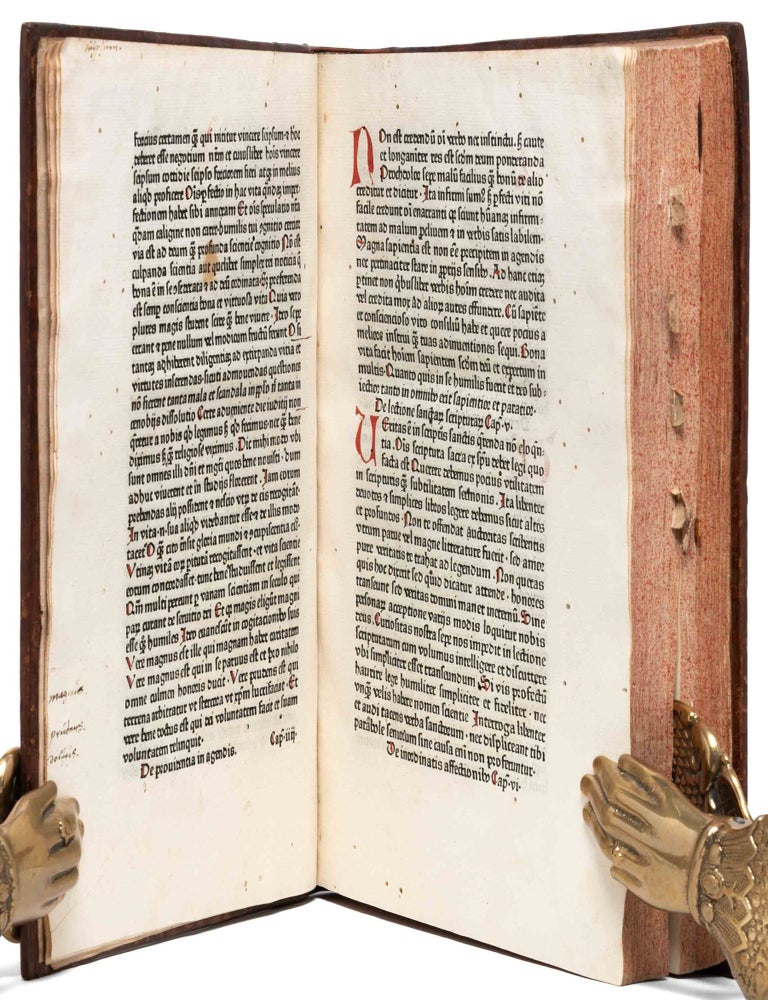 forcius certamen q̃ꝫ qui nititur vincere seipsum ⁊ hoc
deberet esse negotium nr̃m et cuiuslibet hoĩs vincere
seipsum cotidie seipso forciorem fieri atqꝫ in melius
aliqd proficere Oĩs ꝑfectio in hac vita qñdaꝫ imper
fectionem habet sibi annexam Et oĩs speculatio nr̃a
q̃dam caligine non caret humilis tui ꝯgnitio certior
via est ad deum q̃ꝫ profunda scientie cognitio Nõ est
culpanda scientia aut quelibet simplex rei noticia q̃
bona ẽ in se ꝯsiderata ⁊ ad deũ ordinata sꝫ preferenda
est semp conscientia bona et virtuosa vita Quia vero
plures magis student scire q̃ꝫ bene viuere Ideo sepe
errant ⁊ pene nullum vel modicum fructũ ferunt O si
tantaꝫ adhiberent diligentiaꝫ ad extirpanda vitia et
virtutes inserendas sicuti ad mouendas questiones
nõ fierent tanta mala et scandala in pp̃lo nec tanta in
cenobijs dissolutio Certe adueniente die iudicij non
q̃reretur a nobis qd legimus sꝫ qd fecimus nec q̃ꝫ bene
diximus sꝫ q̃ꝫ religiose viximus Dic mihi modo vbi
sunt omnes illi dñi et mgr̃i quos bene nouisti dum
adhuc viuerent et in studijs florerent Iam eorum
prebendas alij possident ⁊ nescio vtrum de eis recogitãt
In vita sua aliqd videbantur esse ⁊ de illis modo
tacetur O q̃ꝫ cito transit gloria mundi
Vtinaꝫ vita eorum scientie
eorum concordasset tunc bene studuissent et legissent
Q̃m multi pereunt ꝑ vanam scientiam in seculo qui
parum curant de seruitio dei Et qꝫ magis eligunt magni
esse q̃ꝫ humiles Ideo euanescunt in cogitationibus suis
Vere magnus est ille qui magnam habet caritatem
Vere magnus est qui in se paruus est et pro nihilo
omne culmen honoris ducit Vere prudens est qui
terrena arbitratur vt stercora vt xp̃m lucrifaciat Et
vere bene doctus est qui dei voluntatem facit et suam
voluntatem relinquit Cap. iiij.
De prouidentia in agendis.
magnus
prudens
doctus
NOn est credendũ oĩ verbo nec instinctui sꝫ caute
et longanimiter res est scd̃m deum ponderanda
Proch dolor sepe malũ facilius q̃ꝫ bonũ de alio
creditur et dicitur Ita infirmi sumus sꝫ ꝑfecti viri nõ
facile credunt oĩ enarranti qꝫ sciunt hũanaꝫ infirmi-
tatem ad malum ꝓcliuem ⁊ in verbis satis labilem
Magna sapientia est non esse precipitem in agendis
nec pertinaciter stare in ꝓprijs sensibꝫ Ad hanc etiaꝫ
ꝑtinet non quibuslibet verbis hoĩm credere nec audita
vel credita mox ad aliorum aures effundere Cũ sapiẽte
et consciencioso viro consiliũ habe et quere pocius a
meliore instrui q̃ꝫ tuas adinuentiones sequi Bona
vita facit hoĩem sapientem scd̃m deũ et expertum in
multis Quanto quis in se humilis fuerit et deo sub-
iectior tanto in omnibꝫ erit sapientior et pacatior
De lectione sanctarum scripturarum Cap. v.
VEritas ẽ in scriptis sanctis querenda nõ eloquẽ-
tia Oĩs scriptura sacra eo spũ debet legi quo
facta est Querere debemus pocius vtilitatem
in scripturis q̃ꝫ subtilitatem sermonis Ita libenter
deuotos ⁊ simplices libros legere debemus sicut altos
et profundos Non te offendat auctoritas scribentis
vtrum parue vel magne litterature fuerit sed amor
pure veritatis te trahat ad legendum Non queras
quis hoc dixerit sed quid dicatur attende homines
transeunt sed veritas domini manet ineternũ Sine
personarum acceptione varijs modis loquitur nobis
deus Curiositas nostra sepe nos impedit in lectione
scripturarum cum volumus intelligere et discutere
vbi simpliciter esset transeundum Si vis profectũ
haurire lege humiliter simpliciter et fideliter nec
vnq̃ꝫ velis habere nomen scientie Interroga libenter
et audi tacens verba sanctorum nec displiceant tibi
parabole seniorum sine causa enĩ non proferuntur
De inordinatis affectionibꝫ Cap. vi.